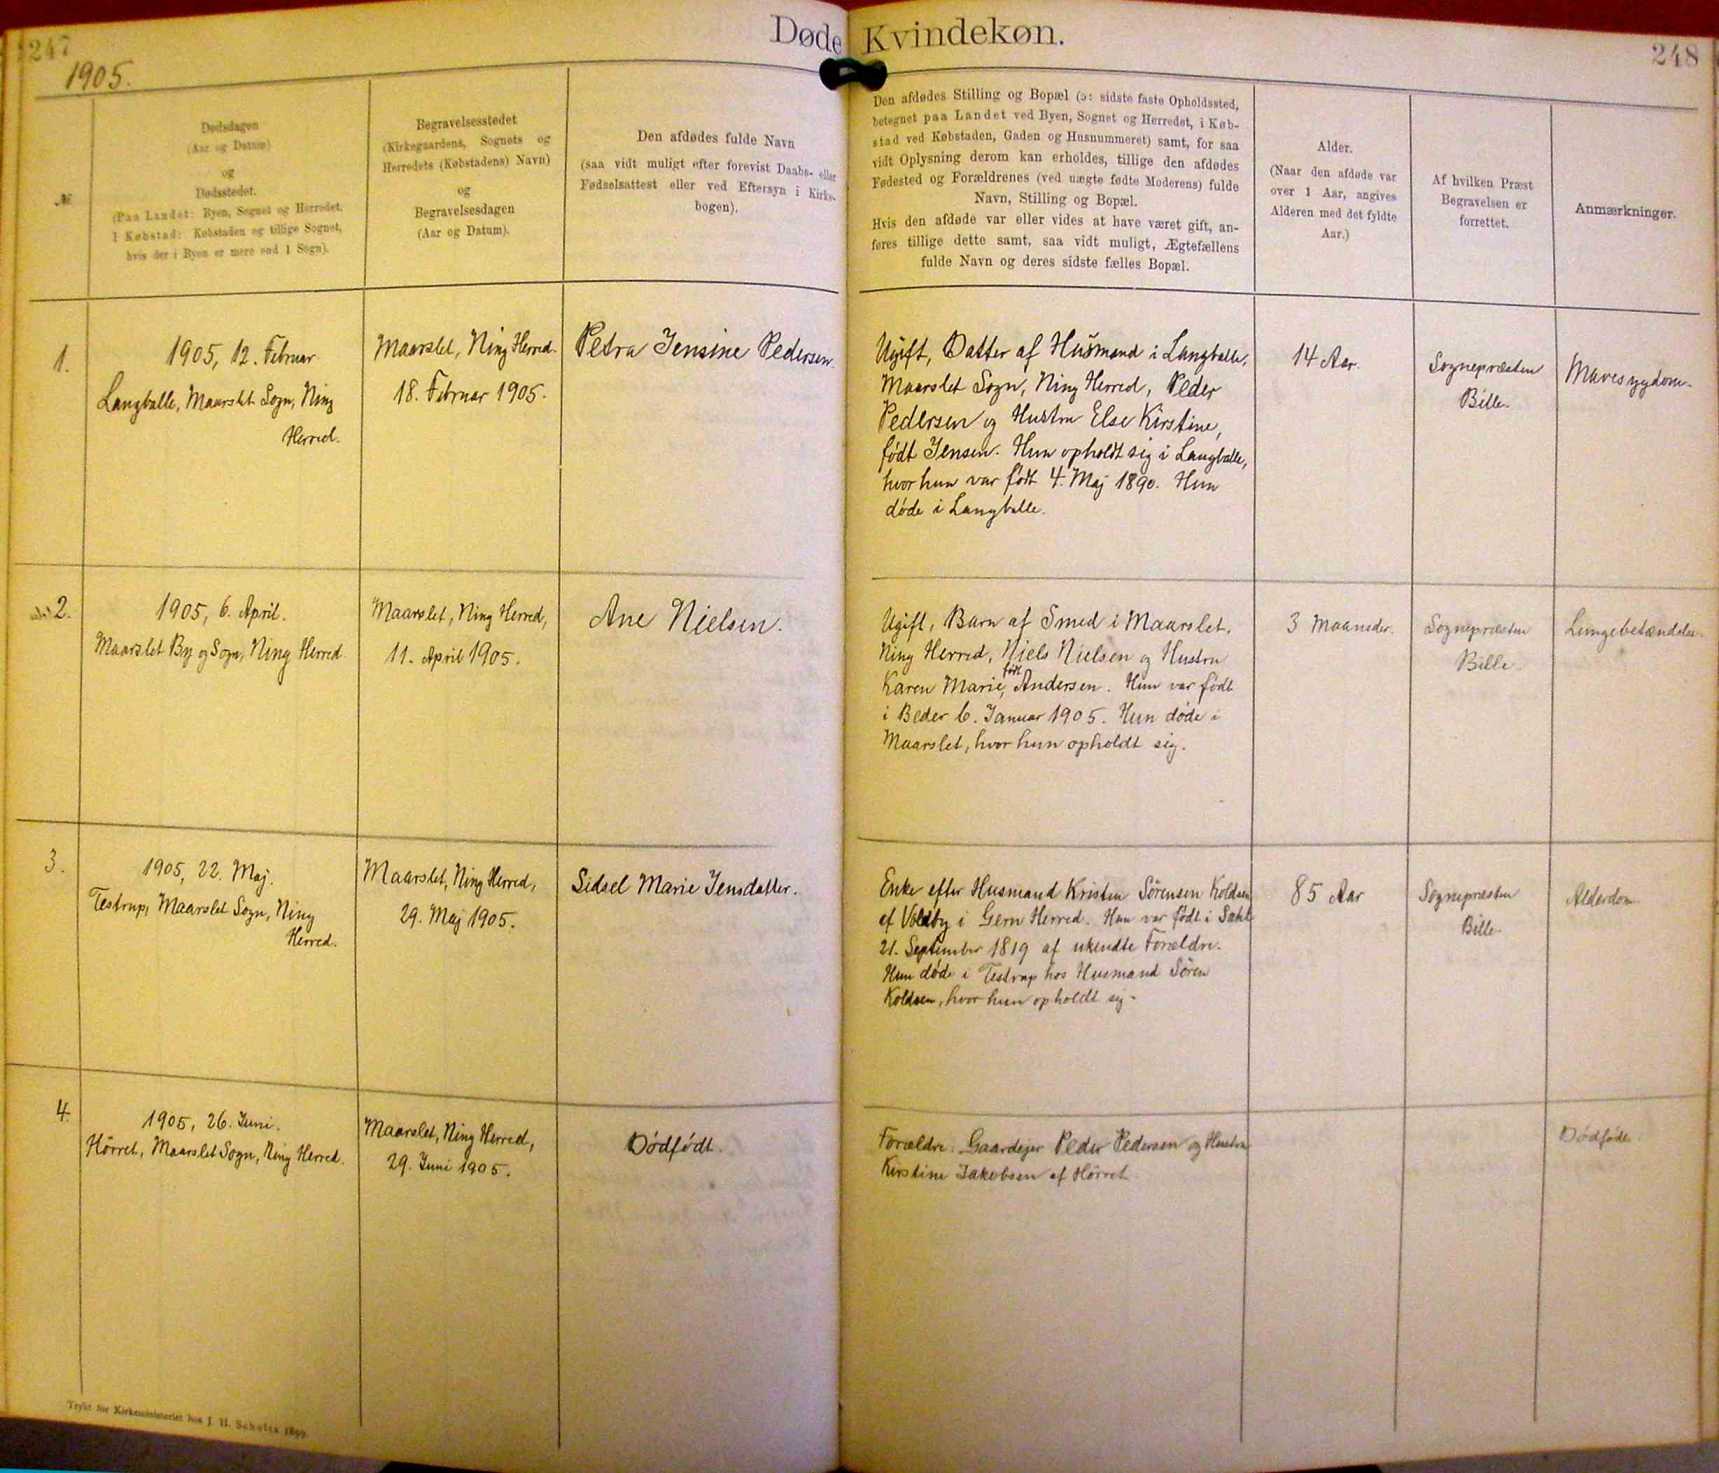 247
1905.
Døde Kvindekøn.
248
№
Dødsdagen
(Aar og Datum)
og
Dødsstedet.
(Paa Landet: Byen, Sognet og Herredet,
I Købstad: Købstaden og tillige Sognet,
hvis der i Byen er mere end 1 Sogn).
Begravelsesstedet
(Kirkegaardens, Sognets og
Herredets (Købstadens) Navn)
og
Begravelsesdagen
(Aar og Datum).
Den afdødes fulde Navn
(saa vidt muligt efter forevist Daabs- eller
Fødselsattest eller ved Eftersyn i Kirke-
bogen).
Den afdødes Stilling og Bopæl (ɔ: sidste faste Opholdssted,
betegnet paa Landet ved Byen, Sognet og Herredet, i Køb-
stad ved Købstaden, Gaden og Husnummeret) samt, for saa
vidt Oplysning derom kan erholdes, tillige den afdødes
Fødested og Forældrenes (ved uægte fødte Moderens) fulde
Navn, Stilling og Bopæl.
Hvis den afdøde var eller vides at have været gift, an-
føres tillige dette samt, saa vidt muligt, Ægtefællens
fulde Navn og deres sidste fælles Bopæl.
Alder.
(Naar den afdøde var
over 1 Aar, angives
Alderen med det fyldte
Aar.)
Af hvilken Præst
Begravelsen er
forrettet.
Anmærkninger.
1.
1905, 12. Februar
Langballe, Maarslet Sogn, Ning
Herred.
Maarslet, Ning Herred.
18. Februar 1905.
Petra Jensine Pedersen.
Ugift, Datter af Husmand i Langballe,
Maarslet Sogn, Ning Herred, Peder
Pedersen og Hustru Else Kirstine,
født Jensen. Hun opholdt sig i Langballe,
hvor hun var født 4. Maj 1890. Hun
døde i Langballe.
14 Aar.
Sognepræsten
Bille.
Mavesygdom.
2.
1905, 6. April.
Maarslet By og Sogn, Ning Herred
Maarslet, Ning Herred,
11. April 1905.
Ane Nielsen.
Ugift, Barn af Smed i Maarslet,
Ning Herred, Niels Nielsen og Hustru
Karen Marie, født Andersen. Hun var født
i Beder 6. Januar 1905. Hun døde i
Maarslet, hvor hun opholdt sig.
3 Maaneder.
Sognepræsten
Bille.
Lungebetændelse.
3.
1905, 22. Maj.
Testrup, Maarslet Sogn, Ning
Herred.
Maarslet, Ning Herred,
29. Maj 1905.
Sidsel Marie Jensdatter.
Enke efter Husmand Kristen Sørensen Koldsen
af Voldby i Gern Herred. Hun var født i
21. September 1819 af ukendte Forældre.
Hun døde i Testrup hos Husmand Søren
Koldsen, hvor hun opholdt sig.
85 Aar
Sognepræsten
Bille.
Alderdom
4.
1905, 26. Juni.
Hørret, Maarslet Sogn, Ning Herred.
Maarslet, Ning Herred,
29. Juni 1905.
Dødfødt.
Forældre: Gaardejer Peder Pedersen og Hustru
Kirstine Jakobsen af Hørret.
Dødfødt.
Trykt for Kirkeministeriet hos J. H. Schultz 1899.